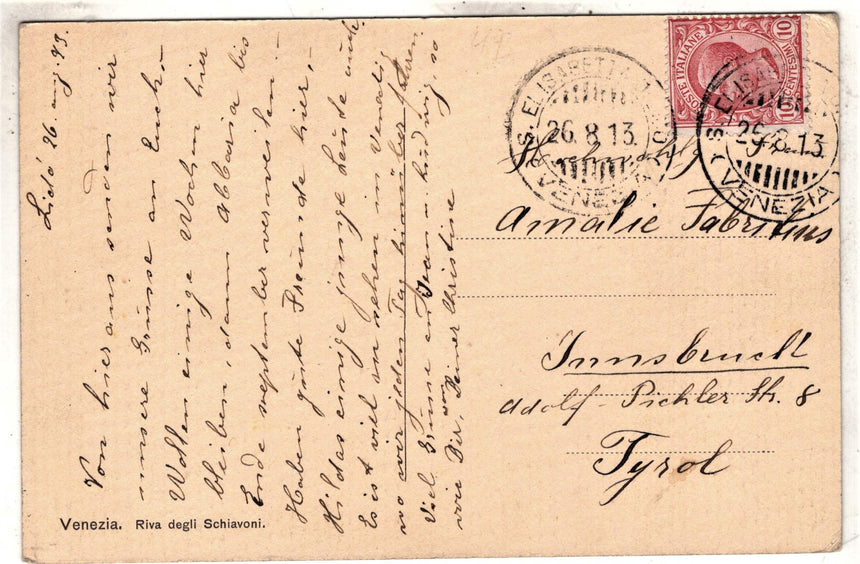 Lido 26 aug 93.
Von hier aus senden wir
unsere Grüsse an Euch.
Wollen einige Wochen hier
bleiben, dann Abbazia bis
Ende september verweilen.
Haben gute Freunde hier,
Hildas einige junge Leute auch
Es ist viel zu sehen in Venedig
wo wir jeden Tag hinüber fahren.
Viel Grüsse an Jean u. Ludwig so
wie Dir, von Deiner Christine
47
S. ELISABETTA
26.8.13
VENEZIA
POSTE ITALIANE
CENTESIMI
10
S. ELISABETTA
26.8.13
VENEZIA
Amalie Fabritius
Innsbruck
Adolf-Pichler Str. 8
Tyrol
Venezia. Riva degli Schiavoni.